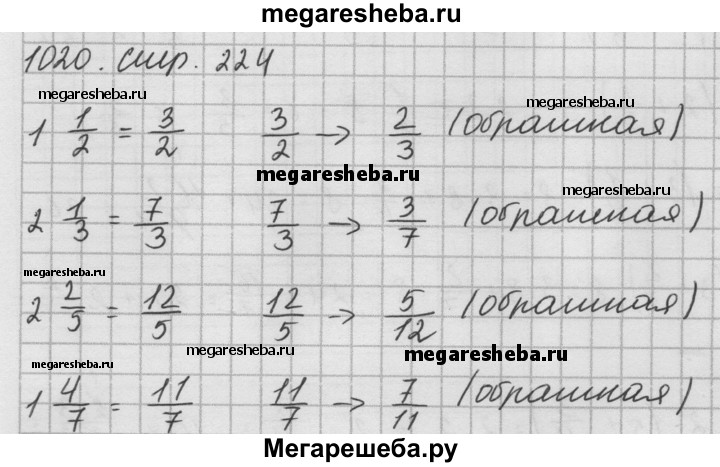 megaresheba.ru
1020. стр. 224
megaresheba.ru megaresheba.ru
1 1/2 = 3/2 3/2 → 2/3 (обратная)
megaresheba.ru
megaresheba.ru
2 1/3 = 7/3 7/3 → 3/7 (обратная)
megaresheba.ru
2 2/5 = 12/5 12/5 → 5/12 (обратная)
megaresheba.ru megaresheba.ru
megaresheba.ru
1 4/7 = 11/7 11/7 → 7/11 (обратная)
Мегарешеба.ру